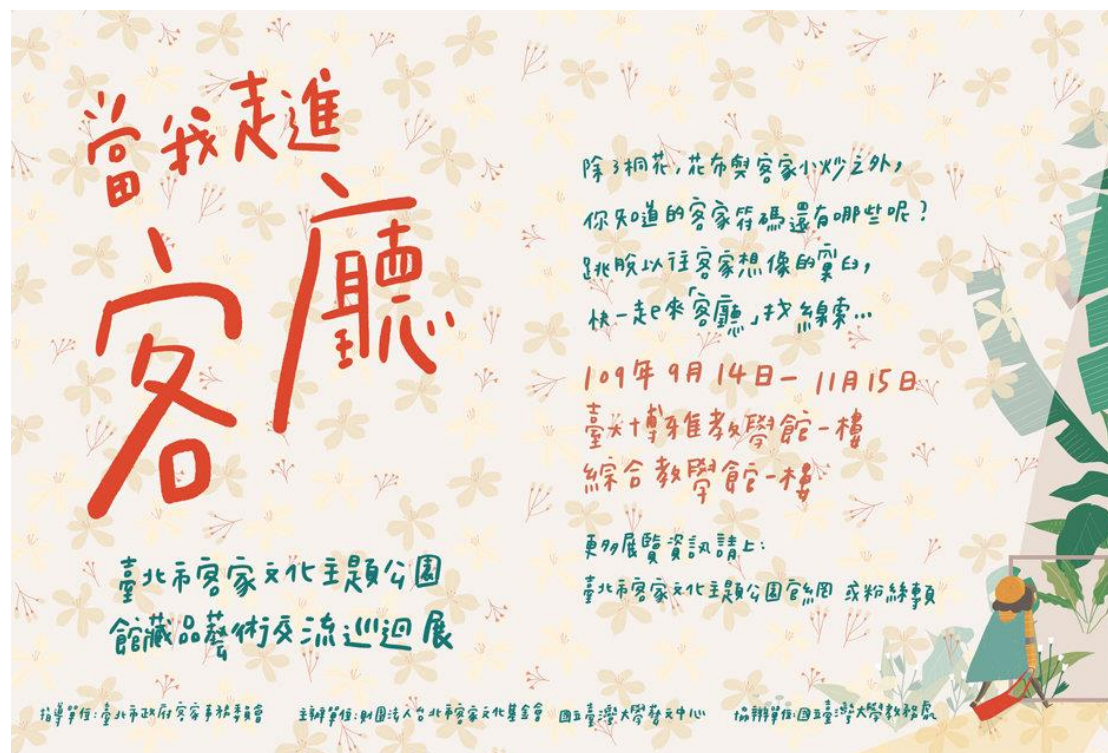 當我走進
客廳
臺北市客家文化主題公園
館藏品藝術交流巡迴展
除了桐花,花布與客家小炒之外,
你知道的客家符碼還有哪些呢?
跳脫以往客家想像的窠臼,
快一起來「客廳」找線索...
109年9月14日－11月15日
臺大博雅教學館一樓
綜合教學館一樓
更多展覽資訊請上:
臺北市客家文化主題公園官網 或粉絲專頁
指導單位:臺北市政府客家事務委員會
主辦單位:財團法人台北市客家文化基金會 國立臺灣大學藝文中心
協辦單位:國立臺灣大學教務處